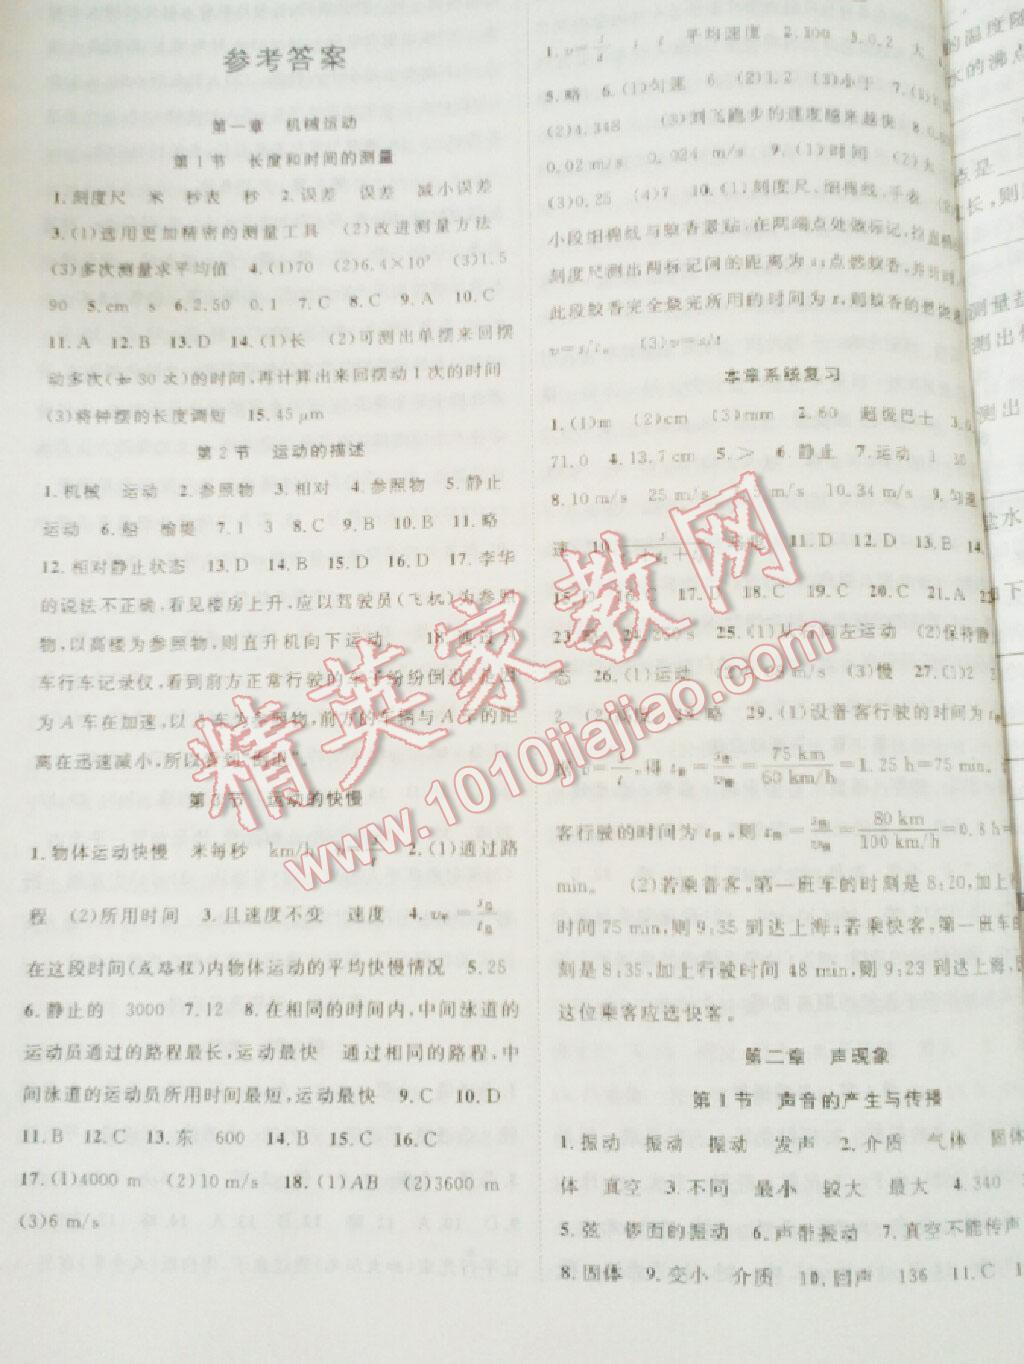 参考答案
第一章 机械运动
第1节 长度和时间的测量
1.刻度尺 米 秒表 秒 2.误差 误差 减小误差
3.(1)选用更加精密的测量工具 (2)改进测量方法
(3)多次测量求平均值 4.(1)70 (2)6.4×10³ (3)1.5
90 5.cm s 6.2.50 0.1 7.C 8.C 9.A 10.C
11.A 12.B 13.D 14.(1)长 (2)可测出单摆来回摆
动多次(如30次)的时间,再计算出来回摆动1次的时间
(3)将钟摆的长度调短 15.45 μm
第2节 运动的描述
1.机械 运动 2.参照物 3.相对 4.参照物 5.静止
运动 6.船 榆堤 7.1 3 8.C 9.B 10.B 11.略
12.相对静止状态 13.D 14.B 15.D 16.D 17.李华
的说法不正确,看见楼房上升,应以驾驶员(飞机)为参照
物,以高楼为参照物,则直升机向下运动。 18.
车行车记录仪,看到前方正常行驶的车子纷纷倒
为A车在加速,以A车为参照物,前方的车辆与A车的距
离在迅速减小,所以看到“倒退”。
第3节 运动的快慢
1.物体运动快慢 米每秒 km/h 2.(1)通过路
程 (2)所用时间 3.且速度不变 速度 4.v平=s总/t总
在这段时间(或路程)内物体运动的平均快慢情况 5.25
6.静止的 3000 7.12 8.在相同的时间内,中间泳道的
运动员通过的路程最长,运动最快 通过相同的路程,中
间泳道的运动员所用时间最短,运动最快 9.C 10.D
11.B 12.C 13.东 600 14.B 15.C 16.C
17.(1)4000 m (2)10 m/s 18.(1)AB (2)3600 m
(3)6 m/s
1.v=s/t s t 平均速度 2.100 3.0.2 大
5.略 6.(1)匀速 (2)1.2 (3)小于 7.
(2)4.348 (3)刘飞跑步的速度越来越快 8.0.0
0.02 m/s 0.024 m/s 9.(1)时间 (2)大
(3)0.25 (4)7 10.(1)刻度尺、细棉线、手表
小段细棉线与蚊香紧贴,在两端点处做标记,拉直棉
刻度尺测出两标记间的距离为s;点燃蚊香,并
此段蚊香完全烧完所用的时间为t,则蚊香的燃烧速
v=s/t。 (3)v=s/t
本章系统复习
1.(1)m (2)cm (3)mm 2.60 超级巴士 3.
71.0 4.13.7 cm 5.> 6.静止 7.运动 1 30
8.10 m/s 25 m/s 10.34 m/s 9.匀速
速 10. 11.D 12.D 13.B 14.
15.D 16.C 17.D 18.C 19.C 20.C 21.A 22.
23.略 24. 25.(1)从 向左运动 (2)保持静
态 26.(1)运动 (2) m/s (3)慢 27.(1)2
2 (2) 略 29.(1)设普客行驶的时间为t普
据v=s/t,得t普=s普/v普=75 km/60 km/h=1.25 h=75 min.
客行驶的时间为t快,则t快=s快/v快=80 km/100 km/h=0.8 h=
min。 (2)若乘普客,第一班车的时刻是8:20,加上
时间75 min,则9:35到达上海;若乘快客,第一班车的
刻是8:35,加上行驶时间48 min,则9:23到达上海,
这位乘客应选快客。
第二章 声现象
第1节 声音的产生与传播
1.振动 振动 振动 发声 2.介质 气体 固体
体 真空 3.不同 最小 较大 最大 4.340
5.弦 锣面的振动 6.声带振动 7.真空不能传声
8.固体 9.变小 介质 10.回声 136 11.C 1
的温度随
水的沸点
点是
长,则
测量
测出
测出
盐水
下
精英家教网
www.1010jiajiao.com